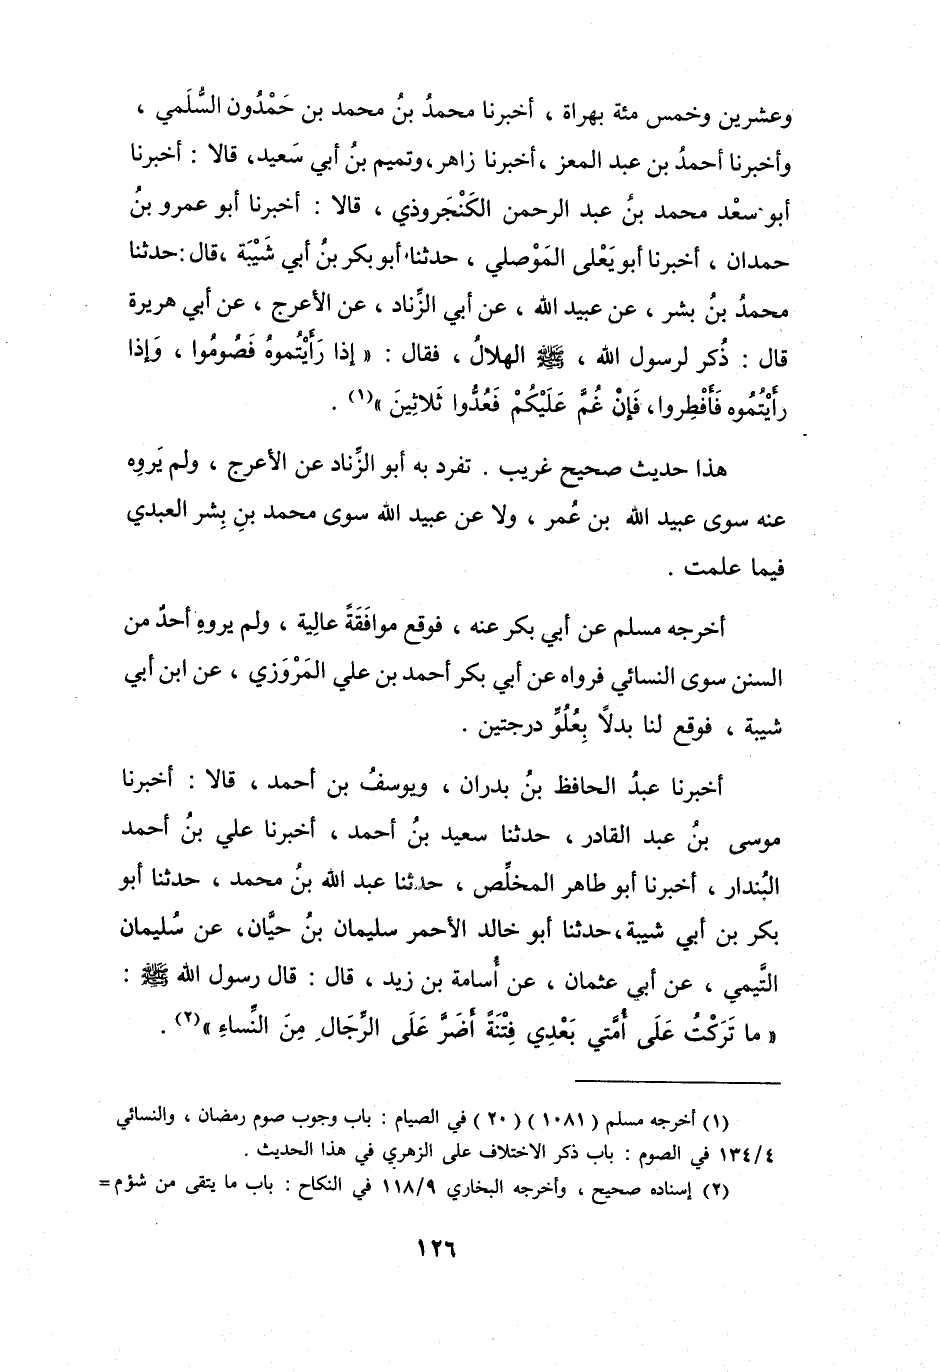 وعشرين وخمس مئة بهراة ، أخبرنا محمدُ بنُ محمد بن حَمْدُون السُّلَمي ،
وأخبرنا أحمدُ بن عبد المعز ، أخبرنا زاهر ، وتميم بنُ أبي سَعيد، قالا : أخبرنا
أبو سعْد محمد بنُ عبد الرحمن الكَنْجَروذي ، قالا : أخبرنا أبو عمرو بنُ
حمدان ، أخبرنا أبو يَعْلى المَوْصلي ، حدثنا أبو بكر بنُ أبي شَيْبَة ، قال : حدثنا
محمدُ بنُ بشر ، عن عبيد الله ، عن أبي الزِّناد ، عن الأعرج ، عن أبي هريرة
قال : ذُكر لرسول الله ، ﷺ الهلالُ ، فقال : « إذا رَأَيْتُموهُ فَصُومُوا ، وَإذا
رأَيْتُمُوه فَأَفْطِروا، فَإنْ غُمَّ عَلَيْكُمْ فَعُدُّوا ثَلاثِينَ »(١) .
هذا حديث صحيح غريب . تفرد به أبو الزِّناد عن الأعرج ، ولم يَروِه
عنه سوى عبيد الله بن عُمر ، ولا عن عبيد الله سوى محمد بنِ بِشر العبدي
فيما علمت .
أخرجه مسلم عن أبي بكر عنه ، فوقع موافَقَةً عالِية ، ولم يروهِ أحدٌ من
السنن سوى النسائي فرواه عن أبي بكر أحمد بن علي المَرْوَزي ، عن ابن أبي
شيبة ، فوقع لنا بدلاً بِعُلُوِّ درجتين .
أخبرنا عبدُ الحافظ بنُ بدران ، ويوسفُ بن أحمد ، قالا : أخبرنا
موسى بنُ عبد القادر ، حدثنا سعيد بنُ أحمد ، أخبرنا علي بنُ أحمد
البُندار ، أخبرنا أبو طاهر المخلِّص ، حدثنا عبد الله بنُ محمد ، حدثنا أبو
بكر بن أبي شيبة، حدثنا أبو خالد الأحمر سليمان بنُ حيَّان، عن سُليمان
التَّيمي ، عن أبي عثمان ، عن أُسامة بن زيد ، قال : قال رسول الله ﷺ :
« ما تَرَكْتُ عَلَى أُمَّتي بَعْدِي فِتْنَةً أَضَرَّ عَلَى الرِّجَالِ مِنَ النِّساءِ »(٢) .
(١) أخرجه مسلم ( ١٠٨١ ) ( ٢٠ ) في الصيام : باب وجوب صوم رمضان ، والنسائي
٤/ ١٣٤ في الصوم : باب ذكر الاختلاف على الزهري في هذا الحديث .
(٢) إسناده صحيح ، وأخرجه البخاري ٩/ ١١٨ في النكاح : باب ما يتقى من شؤم =
١٢٦